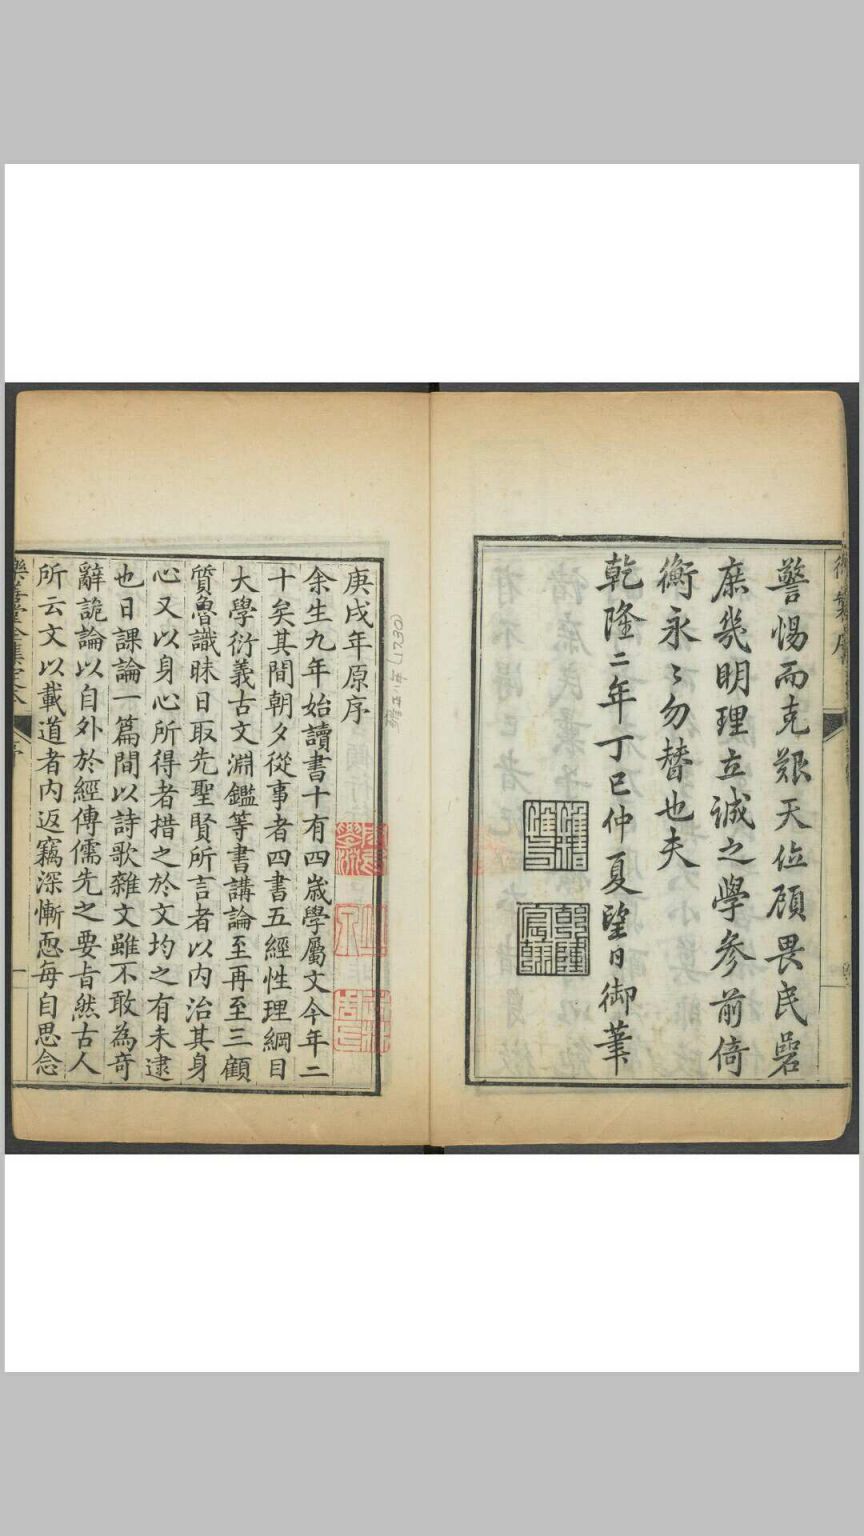 警惕而克艱天位顧畏民碞
庶幾明理立誠之學參前倚
衡永〻勿替也夫
乾隆二年丁巳仲夏望日御筆
庚戌年原序
余生九年始讀書十有四歲學屬文今年二
十矣其間朝夕從事者四書五經性理綱目
大學衍義古文淵鑑等書講論至再至三顧
質魯識昧日取先聖賢所言者以內治其身
心又以身心所得者措之於文均之有未逮
也日課論一篇間以詩歌雜文雖不敢為奇
辭詭論以自外於經傳儒先之要旨然古人
所云文以載道者內返竊深慚恧每自思念
樂善堂全集定本
序
一
雍正八年(1730)
乾隆宸翰